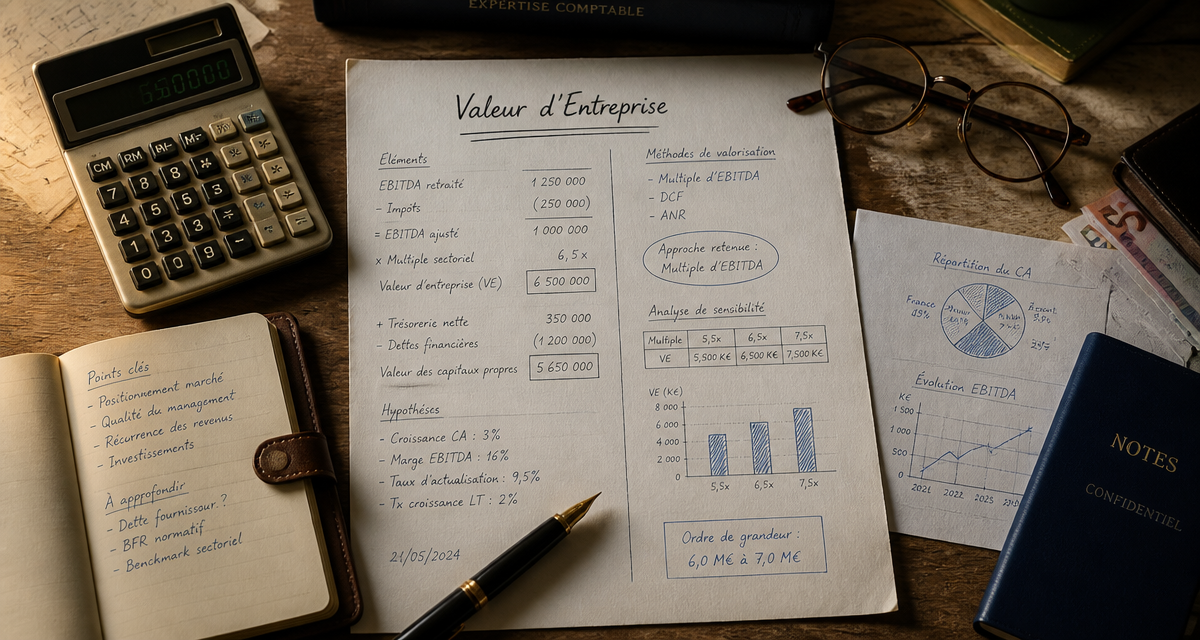 EXPERTISE COMPTABLE
Valeur d'Entreprise
Eléments
EBITDA retraité 1 250 000
- Impôts (250 000)
= EBITDA ajusté 1 000 000
x Multiple sectoriel 6,5 x
Valeur d'entreprise (VE) 6 500 000
+ Trésorerie nette 350 000
- Dettes financières (1 200 000)
Valeur des capitaux propres 5 650 000
Hypothèses
- Croissance CA : 3%
- Marge EBITDA : 16%
- Taux d'actualisation : 9,5%
- Tx croissance LT : 2%
21/05/2024
Méthodes de valorisation
- Multiple d'EBITDA
- DCF
- ANR
Approche retenue :
Multiple d'EBITDA
Analyse de sensibilité
Multiple 5,5x 6,5x 7,5x
VE 5,500 K€ 6,500 K€ 7,500 K€
VE (K€)
8 000
6 000
4 000
2 000
0
5,5x 6,5x 7,5x
Ordre de grandeur :
6,0 M€ à 7,0 M€
CM RM M-
7 8 8 x
4 5 5 3
1 3 3 ÷
0 0 9 -
Points clés
- Positionnement marché
- Qualité du management
- Récurrence des revenus
- Investissements
À approfondir
- Dette fournisseur ?
- BFR normatif
- Benchmark sectoriel
Répartition du CA
France
Évolution EBITDA
K€
1 500
1 000
500
0
2021 2022 2023
NOTES
CONFIDENTIEL